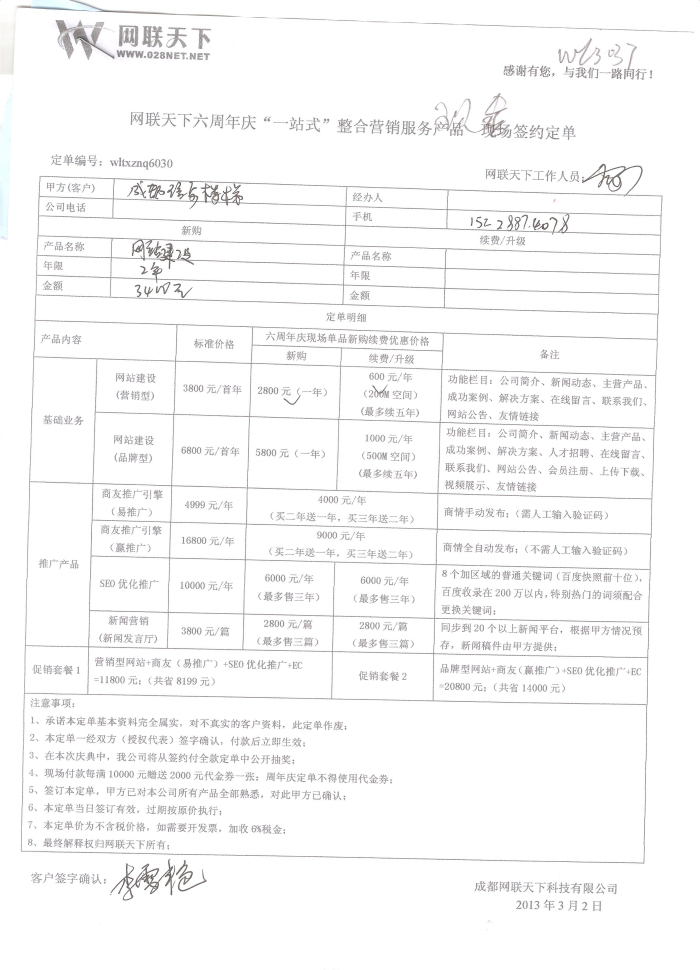 网联天下
WWW.028NET.NET
wl3037
感谢有您，与我们一路同行！
网联天下六周年庆“一站式”整合营销服务产品 现场签约定单
定单编号：wltxznq6030
网联天下工作人员：
甲方(客户) 成都 楼梯 经办人
公司电话 手机 15228874078
新购 续费/升级
产品名称 网站建设 产品名称
年限 2年 年限
金额 3400元 金额
定单明细
产品内容 标准价格 六周年庆现场单品新购续费优惠价格 备注
新购 续费/升级
基础业务
网站建设 (营销型) 3800 元/首年 2800 元（一年） 600 元/年 （200M 空间） (最多续五年)
功能栏目：公司简介、新闻动态、主营产品、
成功案例、解决方案、在线留言、联系我们、
网站公告、友情链接
网站建设 (品牌型) 6800 元/首年 5800 元（一年） 1000 元/年 (500M 空间) (最多续五年)
功能栏目：公司简介、新闻动态、主营产品、
成功案例、解决方案、人才招聘、在线留言、
联系我们、网站公告、会员注册、上传下载、
视频展示、友情链接
推广产品
商友推广引擎 （易推广） 4999 元/年 4000 元/年 （买二年送一年，买三年送二年） 商情手动发布；（需人工输入验证码）
商友推广引擎 （赢推广） 16800 元/年 9000 元/年 （买二年送一年，买三年送二年） 商情全自动发布；（不需人工输入验证码）
SEO 优化推广 10000 元/年 6000 元/年 （最多售三年） 6000 元/年 （最多售三年）
8 个加区域的普通关键词（百度快照前十位），
百度收录在 200 万以内，特别热门的词须配合
更换关键词；
新闻营销 (新闻发言厅) 3800 元/篇 2800 元/篇 （最多售三篇） 2800 元/篇 （最多售三篇）
同步到 20 个以上新闻平台，根据甲方情况预
存，新闻稿件由甲方提供；
促销套餐 1
营销型网站+商友（易推广）+SEO 优化推广+EC
=11800 元；（共省 8199 元）
促销套餐 2
品牌型网站+商友（赢推广）+SEO 优化推广+EC
=20800 元；（共省 14000 元）
注意事项：
1、承诺本定单基本资料完全属实，对不真实的客户资料，此定单作废；
2、本定单一经双方（授权代表）签字确认，付款后立即生效；
3、在本次庆典中，我公司将从签约付全款定单中公开抽奖；
4、现场付款每满 10000 元赠送 2000 元代金券一张；周年庆定单不得使用代金券；
5、签订本定单，甲方已对本公司所有产品全部熟悉，对此甲方已确认；
6、本定单当日签订有效，过期按原价执行；
7、本定单价为不含税价格，如需要开发票，加收 6%税金；
8、最终解释权归网联天下所有；
客户签字确认：李雪艳
成都网联天下科技有限公司
2013 年 3 月 2 日